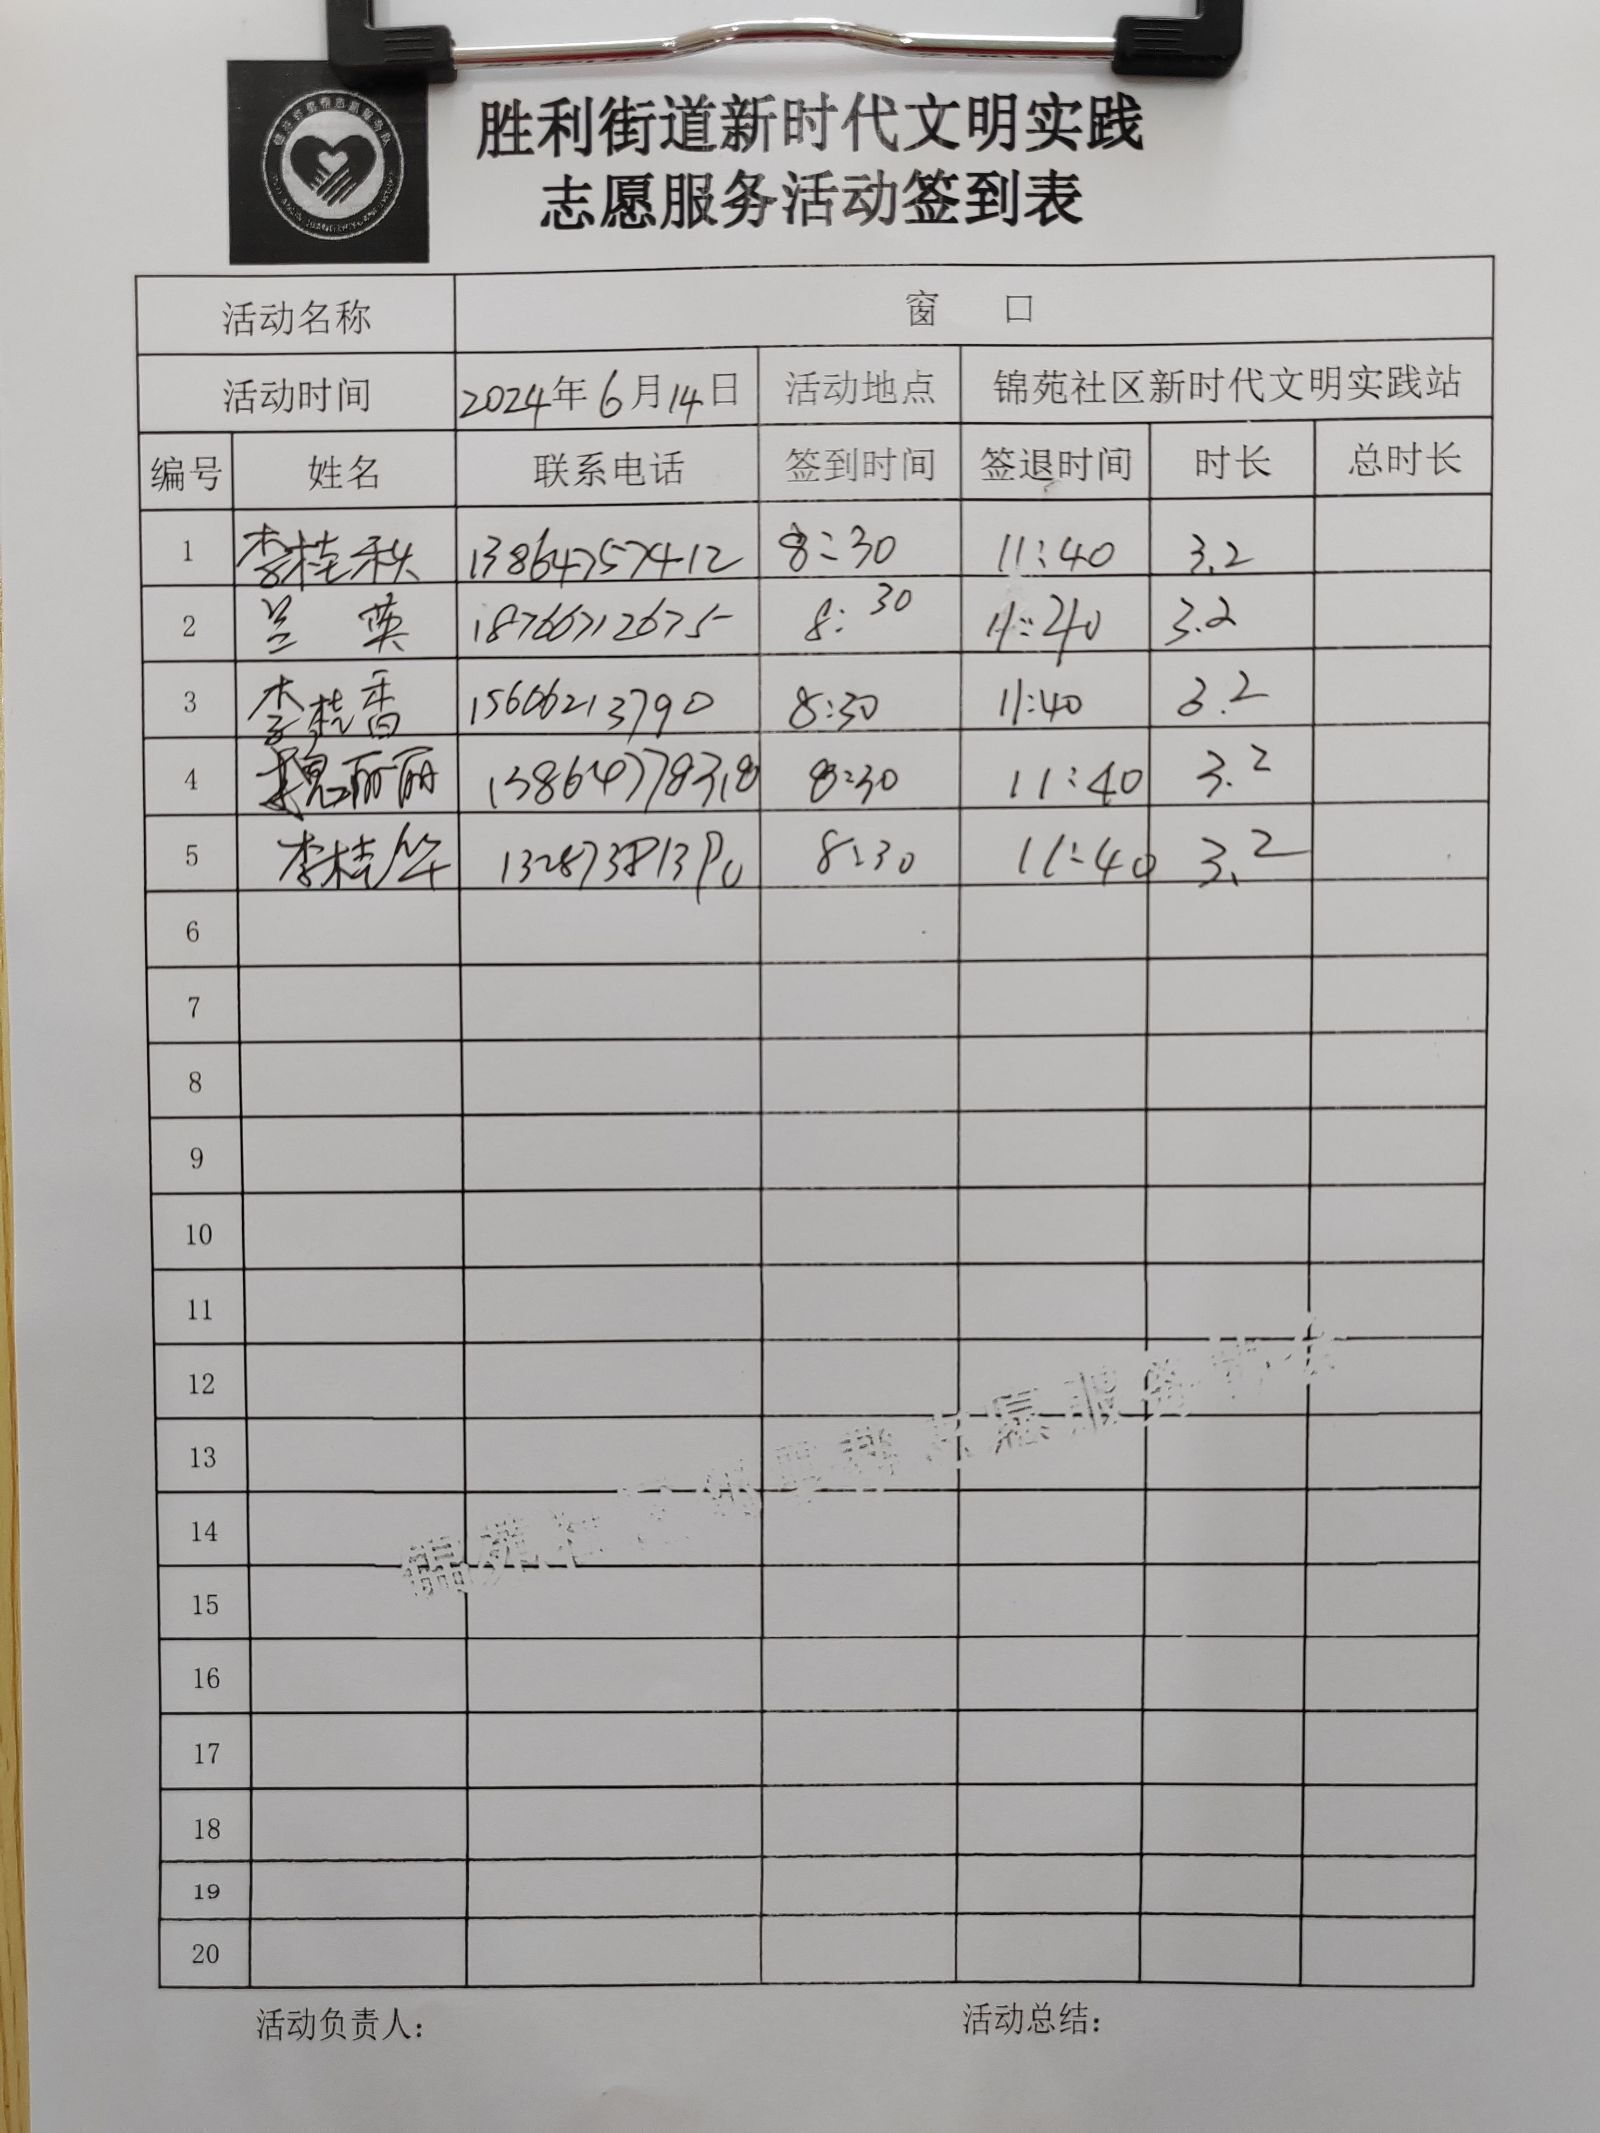 胜利街道新时代文明实践
志愿服务活动签到表
活动名称 窗 口
活动时间 2024年6月14日 活动地点 锦苑社区新时代文明实践站
编号 姓名 联系电话 签到时间 签退时间 时长 总时长
1 李桂秋 13864757412 8:30 11:40 3.2
2 兰 英 18766712675 8:30 11:40 3.2
3 李桂香 15606213790 8:30 11:40 3.2
4 魏丽丽 13864778318 8:30 11:40 3.2
5 李桂华 13287381390 8:30 11:40 3.2
6
7
8
9
10
11
12
13
14
15
16
17
18
19
20
活动负责人： 活动总结：